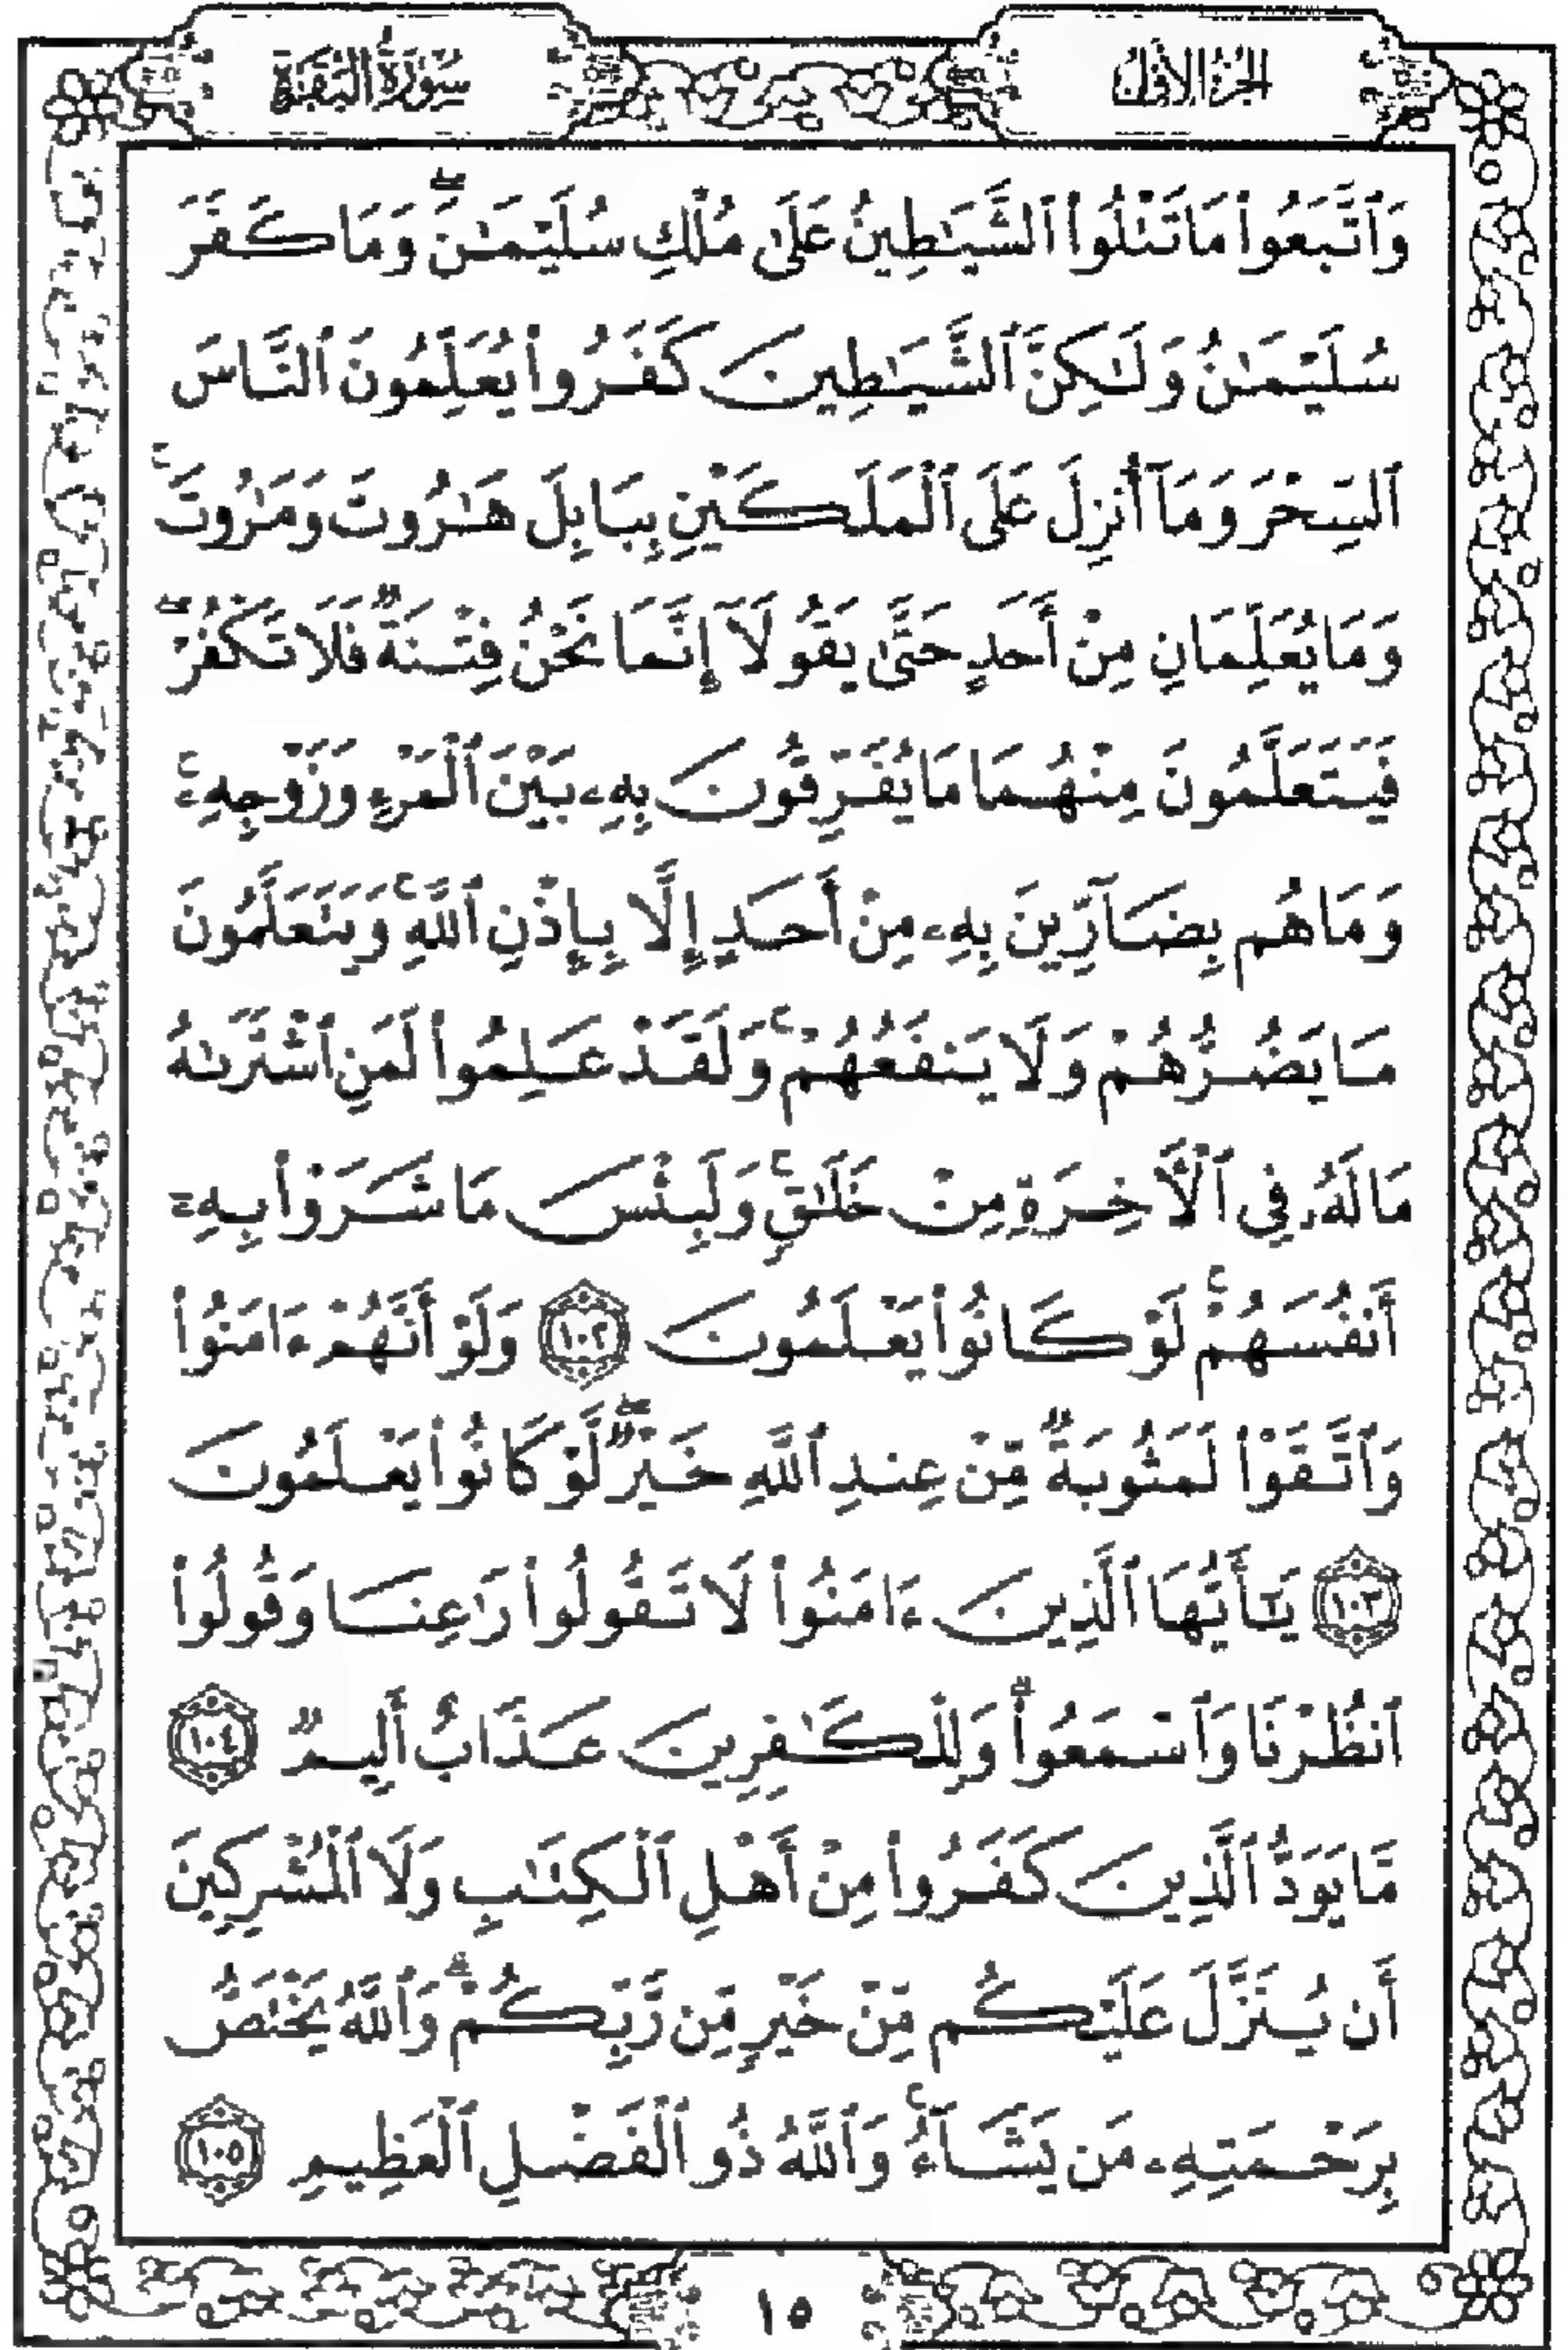 الجزء الأول
سورة البقرة
وَٱتَّبَعُوا۟ مَا تَتْلُوا۟ ٱلشَّيَٰطِينُ عَلَىٰ مُلْكِ سُلَيْمَٰنَ ۖ وَمَا كَفَرَ
سُلَيْمَٰنُ وَلَٰكِنَّ ٱلشَّيَٰطِينَ كَفَرُوا۟ يُعَلِّمُونَ ٱلنَّاسَ
ٱلسِّحْرَ وَمَآ أُنزِلَ عَلَى ٱلْمَلَكَيْنِ بِبَابِلَ هَٰرُوتَ وَمَٰرُوتَ ۚ
وَمَا يُعَلِّمَانِ مِنْ أَحَدٍ حَتَّىٰ يَقُولَآ إِنَّمَا نَحْنُ فِتْنَةٌ فَلَا تَكْفُرْ ۖ
فَيَتَعَلَّمُونَ مِنْهُمَا مَا يُفَرِّقُونَ بِهِۦ بَيْنَ ٱلْمَرْءِ وَزَوْجِهِۦ ۚ
وَمَا هُم بِضَآرِّينَ بِهِۦ مِنْ أَحَدٍ إِلَّا بِإِذْنِ ٱللَّهِ ۚ وَيَتَعَلَّمُونَ
مَا يَضُرُّهُمْ وَلَا يَنفَعُهُمْ ۚ وَلَقَدْ عَلِمُوا۟ لَمَنِ ٱشْتَرَىٰهُ
مَا لَهُۥ فِى ٱلْءَاخِرَةِ مِنْ خَلَٰقٍ ۚ وَلَبِئْسَ مَا شَرَوْا۟ بِهِۦٓ
أَنفُسَهُمْ ۚ لَوْ كَانُوا۟ يَعْلَمُونَ ١٠٢ وَلَوْ أَنَّهُمْ ءَامَنُوا۟
وَٱتَّقَوْا۟ لَمَثُوبَةٌ مِّنْ عِندِ ٱللَّهِ خَيْرٌ ۖ لَّوْ كَانُوا۟ يَعْلَمُونَ
١٠٣ يَٰٓأَيُّهَا ٱلَّذِينَ ءَامَنُوا۟ لَا تَقُولُوا۟ رَٰعِنَا وَقُولُوا۟
ٱنظُرْنَا وَٱسْمَعُوا۟ ۗ وَلِلْكَٰفِرِينَ عَذَابٌ أَلِيمٌ ١٠٤
مَّا يَوَدُّ ٱلَّذِينَ كَفَرُوا۟ مِنْ أَهْلِ ٱلْكِتَٰبِ وَلَا ٱلْمُشْرِكِينَ
أَن يُنَزَّلَ عَلَيْكُم مِّنْ خَيْرٍ مِّن رَّبِّكُمْ ۗ وَٱللَّهُ يَخْتَصُّ
بِرَحْمَتِهِۦ مَن يَشَآءُ ۚ وَٱللَّهُ ذُو ٱلْفَضْلِ ٱلْعَظِيمِ ١٠٥
١٥